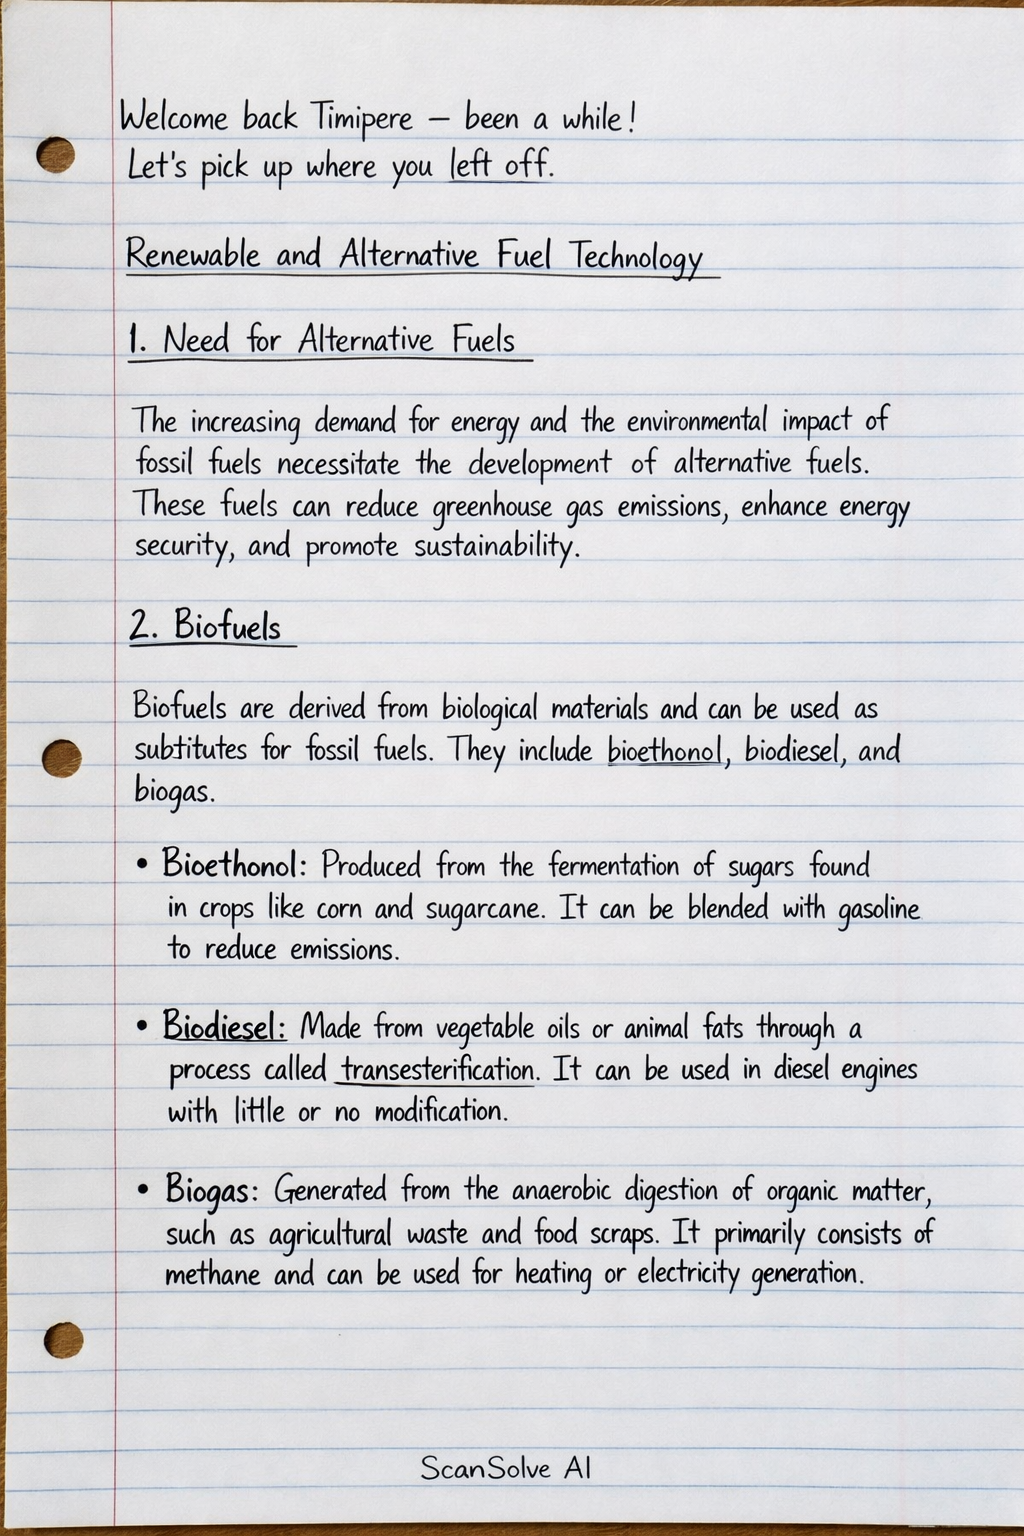 Welcome back Timipere – been a while!
Let's pick up where you left off.
Renewable and Alternative Fuel Technology
1. Need for Alternative Fuels
The increasing demand for energy and the environmental impact of
fossil fuels necessitate the development of alternative fuels.
These fuels can reduce greenhouse gas emissions, enhance energy
security, and promote sustainability.
2. Biofuels
Biofuels are derived from biological materials and can be used as
substitutes for fossil fuels. They include bioethonol, biodiesel, and
biogas.
• Bioethonol: Produced from the fermentation of sugars found
in crops like corn and sugarcane. It can be blended with gasoline
to reduce emissions.
• Biodiesel: Made from vegetable oils or animal fats through a
process called transesterification. It can be used in diesel engines
with little or no modification.
• Biogas: Generated from the anaerobic digestion of organic matter,
such as agricultural waste and food scraps. It primarily consists of
methane and can be used for heating or electricity generation.
ScanSolve AI